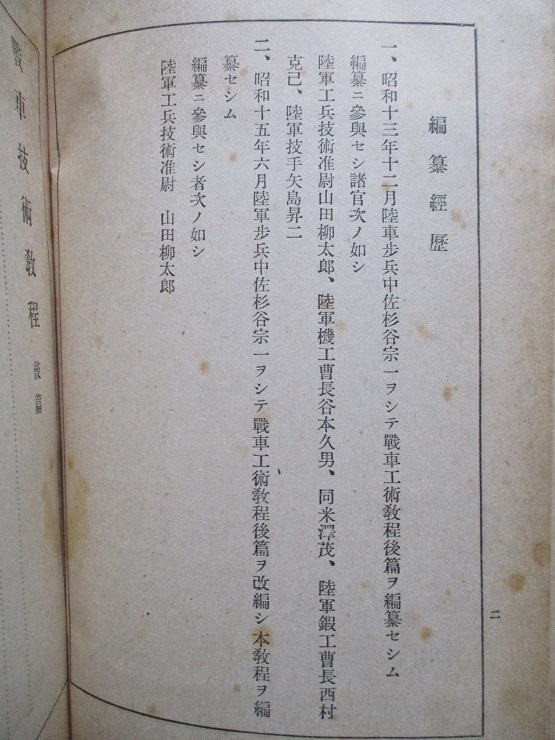 編纂經歷
一、昭和十三年十二月陸車步兵中佐杉谷宗一ヲシテ戰車工術敎程後篇ヲ編纂セシム
編纂ニ參與セシ諸官次ノ如シ
陸軍工兵技術准尉山田柳太郎、陸軍機工曹長谷本久男、同米澤茂、陸軍鍛工曹長西村
克己、陸軍技手矢島昇二
二、昭和十五年六月陸軍步兵中佐杉谷宗一ヲシテ戰車工術敎程後篇ヲ改編シ本敎程ヲ編
纂セシム
編纂ニ參與セシ者次ノ如シ
陸軍工兵技術准尉　山田柳太郎
二
戰車技術敎程 後篇